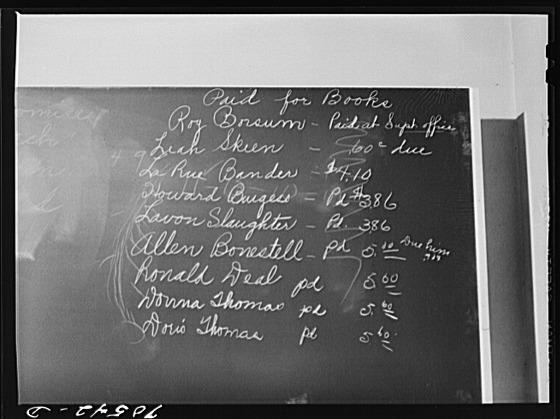 Paid for Books
Roy Borsum - Paid at Supt. office
Leah Skeen - 60¢ due
La Rue Bander = $4.10
Howard Burgess = Pd $3.86
Lavon Slaughter - Pd. 386
Allen Bonestell - pd 5.60 Due him
Ronald Deal pd 5.60
Donna Thomas pd 5.60
Doris Thomas pd 5.60
70542-D